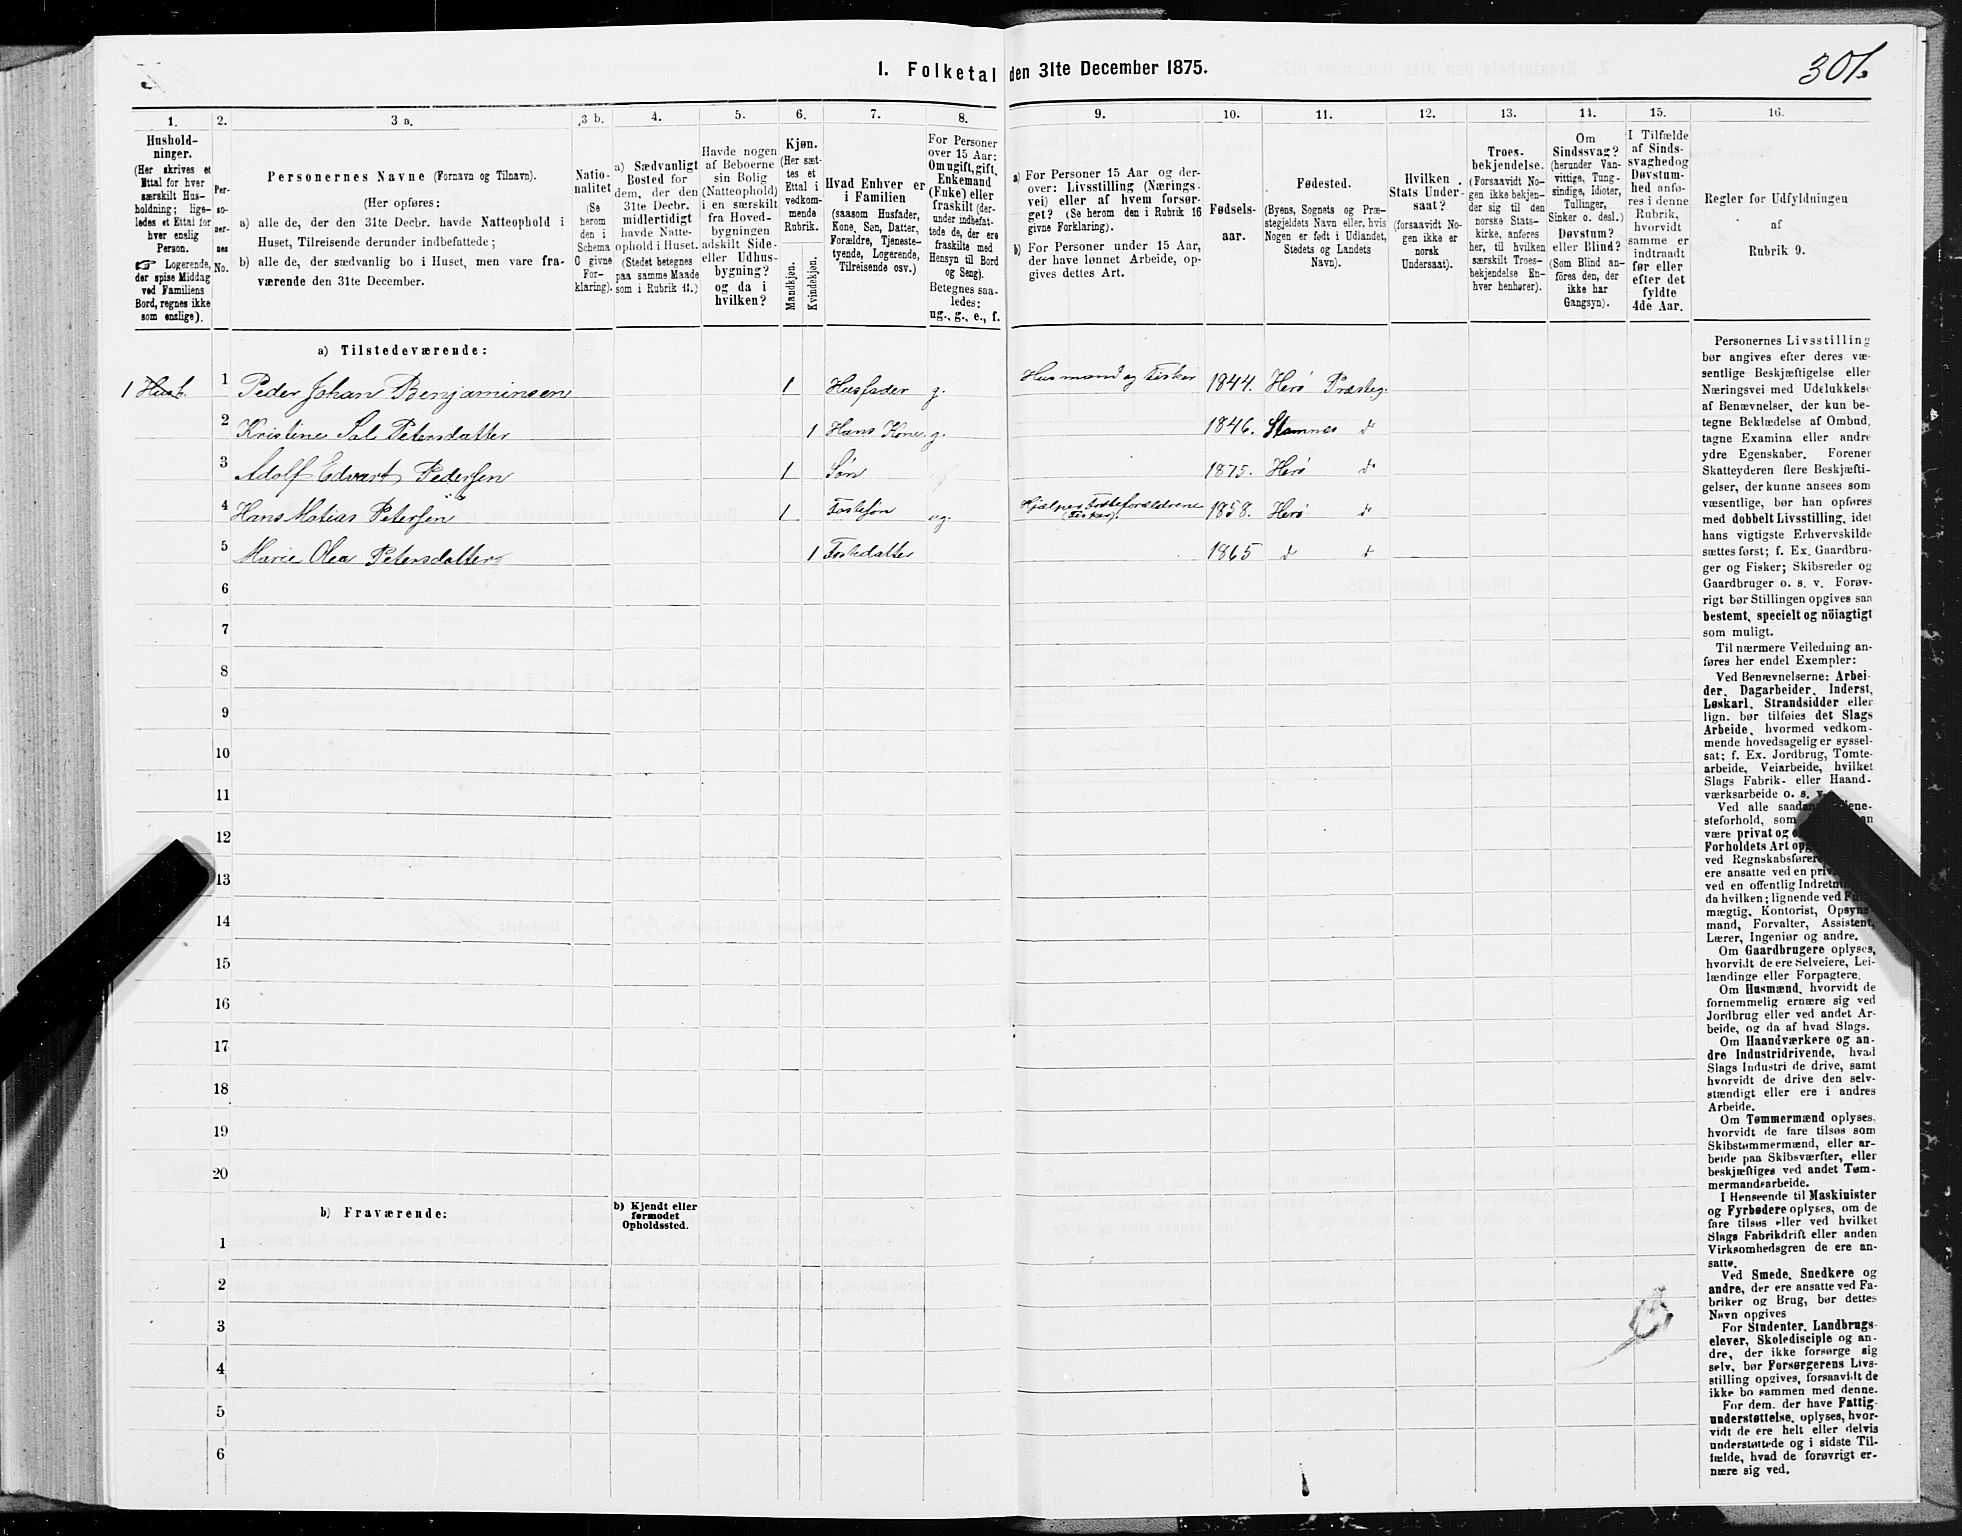 1. Folketal den 31te December 1875.
301.
1.
2.
3 a.
3 b.
4.
5.
6.
7.
8.
9.
10.
11.
12.
13.
14.
15.
16.
Hushold-
ninger.
(Her skrives et
Ettal for hver
særskilt Hus-
holdning; lige-
ledes et Ettal for
hver enslig
Person.
☞ Logerende,
der spise Middag
ved Familiens
Bord, regnes ikke
som enslige).
Per-
so-
ner-
nes
No.
Personernes Navne (Fornavn og Tilnavn).
(Her opføres:
a) alle de, der den 31te Decbr. havde Natteophold i
Huset, Tilreisende derunder indbefattede;
b) alle de, der sædvanlig bo i Huset, men vare fra-
værende den 31te December.
Natio-
nalitet
(Se
herom
den i
Schema
C givne
For-
klaring).
a) Sædvanligt
Bosted for
dem, der den
31te Decbr.
midlertidigt
havde Natte-
ophold i Huset.
(Stedet betegnes
paa samme Maade
som i Rubrik 11.)
Havde nogen
af Beboerne
sin Bolig
(Natteophold)
i en særskilt
fra Hoved-
bygningen
adskilt Side-
eller Udhus-
bygning?
og da i
hvilken?
Kjøn.
(Her sæt-
tes et
Ettal i
vedkom-
mende
Rubrik.
Mandkjøn.
Kvindekjøn.
Hvad Enhver er
i Familien
(saasom Husfader,
Kone, Søn, Datter,
Forældre, Tjeneste-
tyende, Logerende,
Tilreisende osv.)
For Personer
over 15 Aar:
Om ugift, gift,
Enkemand
(Enke) eller
fraskilt (der-
under indbefat-
tede de, der ere
fraskilte med
Hensyn til Bord
og Seng).
Betegnes saa-
ledes:
ug., g., e., f.
a) For Personer 15 Aar og der-
over: Livsstilling (Nærings-
vei) eller af hvem forsør-
get? (Se herom den i Rubrik 16
givne Forklaring).
b) For Personer under 15 Aar,
der have lønnet Arbeide, op-
gives dettes Art.
Fødsels-
aar.
Fødested.
(Byens, Sognets og Præ-
stegjeldets Navn eller, hvis
Nogen er født i Udlandet,
Stedets og Landets
Navn).
Hvilken
Stats Under-
saat?
(forsaavidt No-
gen ikke er
norsk
Undersaat).
Troes-
bekjendelse.
(Forsaavidt No-
gen ikke bekjen-
der sig til den
norske Stats-
kirke, anføres
her, til hvilken
særskilt Troes-
bekjendelse En-
hver henhører).
Om
Sindssvag?
(herunder Van-
vittige, Tung-
sindige, Idioter,
Tullinger,
Sinker o. desl.)
Døvstum?
eller Blind?
(Som Blind an-
føres den, der
ikke har
Gangsyn).
I Tilfælde
af Sinds-
svaghed og
Døvstum-
hed anfø-
res i denne
Rubrik,
hvorvidt
samme er
indtraadt
før eller
efter det
fyldte
4de Aar.
Regler før Udfyldningen
af
Rubrik 9.
a) Tilstedeværende:
1 Husb. 1 Peder Johan Benjaminsen 1 Husfader g. Husmand og Fisker 1844. Herø Præsteg.
2 Kristine Sal Petersdatter 1 Hans Kone g. 1846. Stamnes d
3 Adolf Edvart Pedersen 1 Søn 1875. Herø d
4 Hans Matias Petersen 1 Fostesøn ug. Hjælper Fosteforældrene (Fisker). 1858. Herø d
5 Marie Olea Petersdatter 1 Fostedatter 1865 d d
6
7
8
9
10
11
12
13
14
15
16
17
18
19
20
b) Fraværende:
b) Kjendt eller
formodet
Opholdssted.
1
2
3
4
5
6
Personernes Livsstilling
bør angives efter deres væ-
sentlige Beskjæftigelse eller
Næringsvei med Udelukkelse
af Benævnelser, der kun be-
tegne Beklædelse af Ombud,
tagne Examina eller andre
ydre Egenskaber. Forener
Skatteyderen flere Beskjæfti-
gelser, der kunne ansees som
væsentlige, bør han opføres
med dobbelt Livsstilling, idet
hans vigtigste Erhvervskilde
sættes først; f. Ex. Gaardbru-
ger og Fisker; Skibsreder og
Gaardbruger o. s. v. Forøv-
rigt bør Stillingen opgives saa
bestemt, specielt og nöiagtigt
som muligt.
Til nærmere Veiledning an-
føres her endel Exempler:
Ved Benævnelserne: Arbei-
der, Dagarbeider, Inderst,
Løskarl, Strandsidder eller
lign. bør tilføies det Slags
Arbeide, hvormed vedkom-
mende hovedsagelig er syssel-
sat; f. Ex. Jordbrug, Tomte-
arbeide, Veiarbeide, hvilket
Slags Fabrik- eller Haand-
værksarbeide o. s. v.
Ved alle saadan
steforhold, som
være privat og
Forholdets Art
ved Regnskabsfører
ere ansatte ved en
ved en offentlig
da hvilken; lignende ved
mægtig, Kontorist,
mand, Forvalter, Assistent,
Lærer, Ingeniør og andre.
Om Gaardbrugere oplyses,
hvorvidt de ere Selveiere, Lei-
lændinge eller Forpagtere.
Om Husmænd, hvorvidt de
fornemmelig ernære sig ved
Jordbrug eller ved andet Ar-
beide, og da af hvad Slags.
Om Haandværkere og an-
dre Industridrivende, hvad
Slags Industri de drive, samt
hvorvidt de drive den selv-
stændigt eller ere i andres
Arbeide.
Om Tømmermænd oplyses,
hvorvidt de fare tilsøs som
Skibstømmermænd, eller ar-
beide paa Skibsværfter, eller
beskjæftiges ved andet Tøm-
mermandsarbeide.
I Henseende til Maskinister
og Fyrbødere oplyses, om de
fare tilsøs eller ved hvilket
Slags Fabrikdrift eller anden
Virksomhedsgren de ere an-
satte.
Ved Smede, Snedkere og
andre, der ere ansatte ved Fa-
briker og Brug, bør dettes
Navn opgives
For Studenter, Landbrugs-
elever, Skoledisciple og an-
dre, der ikke forsørge sig
selv, bør Forsørgerens Livs-
stilling opgives, forsaavidt de
ikke bo sammen med denne.
For dem, der have Fattig-
understøttelse, oplyses, hvor-
vidt de ere helt eller delvis
understøttede og i sidste Til-
fælde, hvad de forøvrigt er-
nære sig ved.